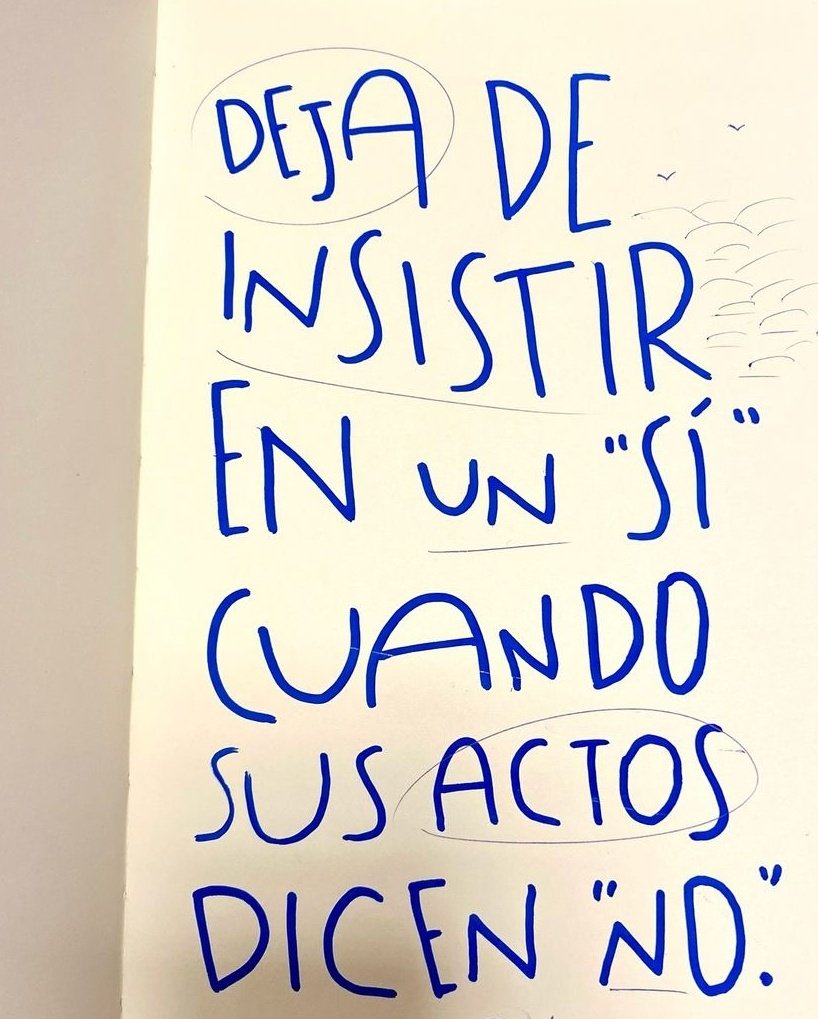 DEJA DE
INSISTIR
EN UN "SÍ"
CUANDO
SUS ACTOS
DICEN "NO".